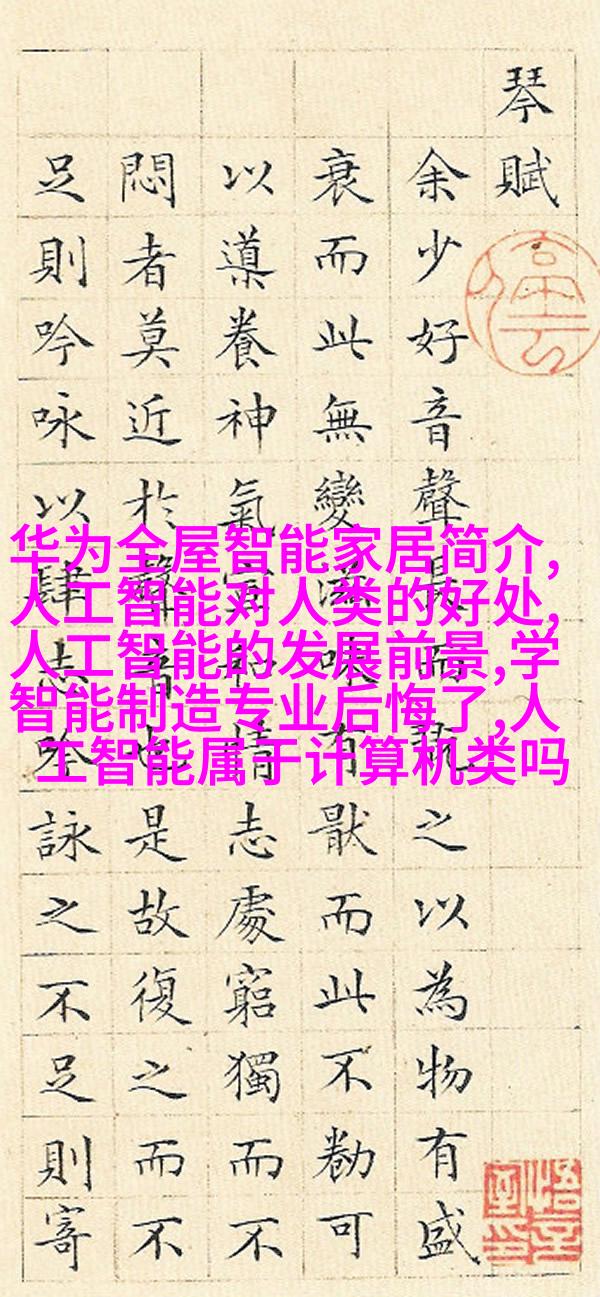 琴賦
余少好音聲長而翫之以為物有盛
衰而此無變滋味有猒而此不勌可
以導養神氣宣和情志處窮獨而不
悶者莫近於聲音也是故復之而不
足則吟咏以肆志吟詠之不足則寄
华为全屋智能家居简介,
人工智能对人类的好处,
人工智能的发展前景,学
智能制造专业后悔了,人
工智能属于计算机类吗